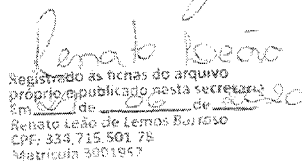 Renato Leão
Registrado às fichas do arquivo
próprio e publicado nesta secretaria
Em de 06 de 2020
Renato Leão de Lemos Barroso
CPF: 334.715.501-78
Matrícula 3001962